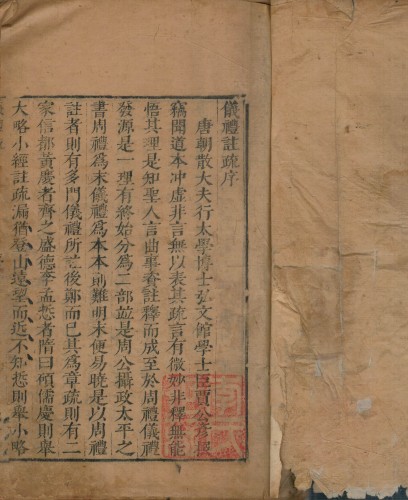 儀禮註疏序
唐朝散大夫行太學博士弘文館學士臣賈公彥撰
竊聞道本冲虛非言無以表其疏言有微妙非釋無能
悟其理是知聖人言曲事資註釋而成至於周禮儀禮
發源是一理有終始分為二部並是周公攝政太平之
書周禮為末儀禮為本本則難明末便易曉是以周禮
註者則有多門儀禮所註後鄭而已其為章疏則有二
家信都黃慶者齊之盛德李孟悊者隋曰碩儒慶則舉
大略小經註疏漏猶登山遠望而近不知悊則舉小略